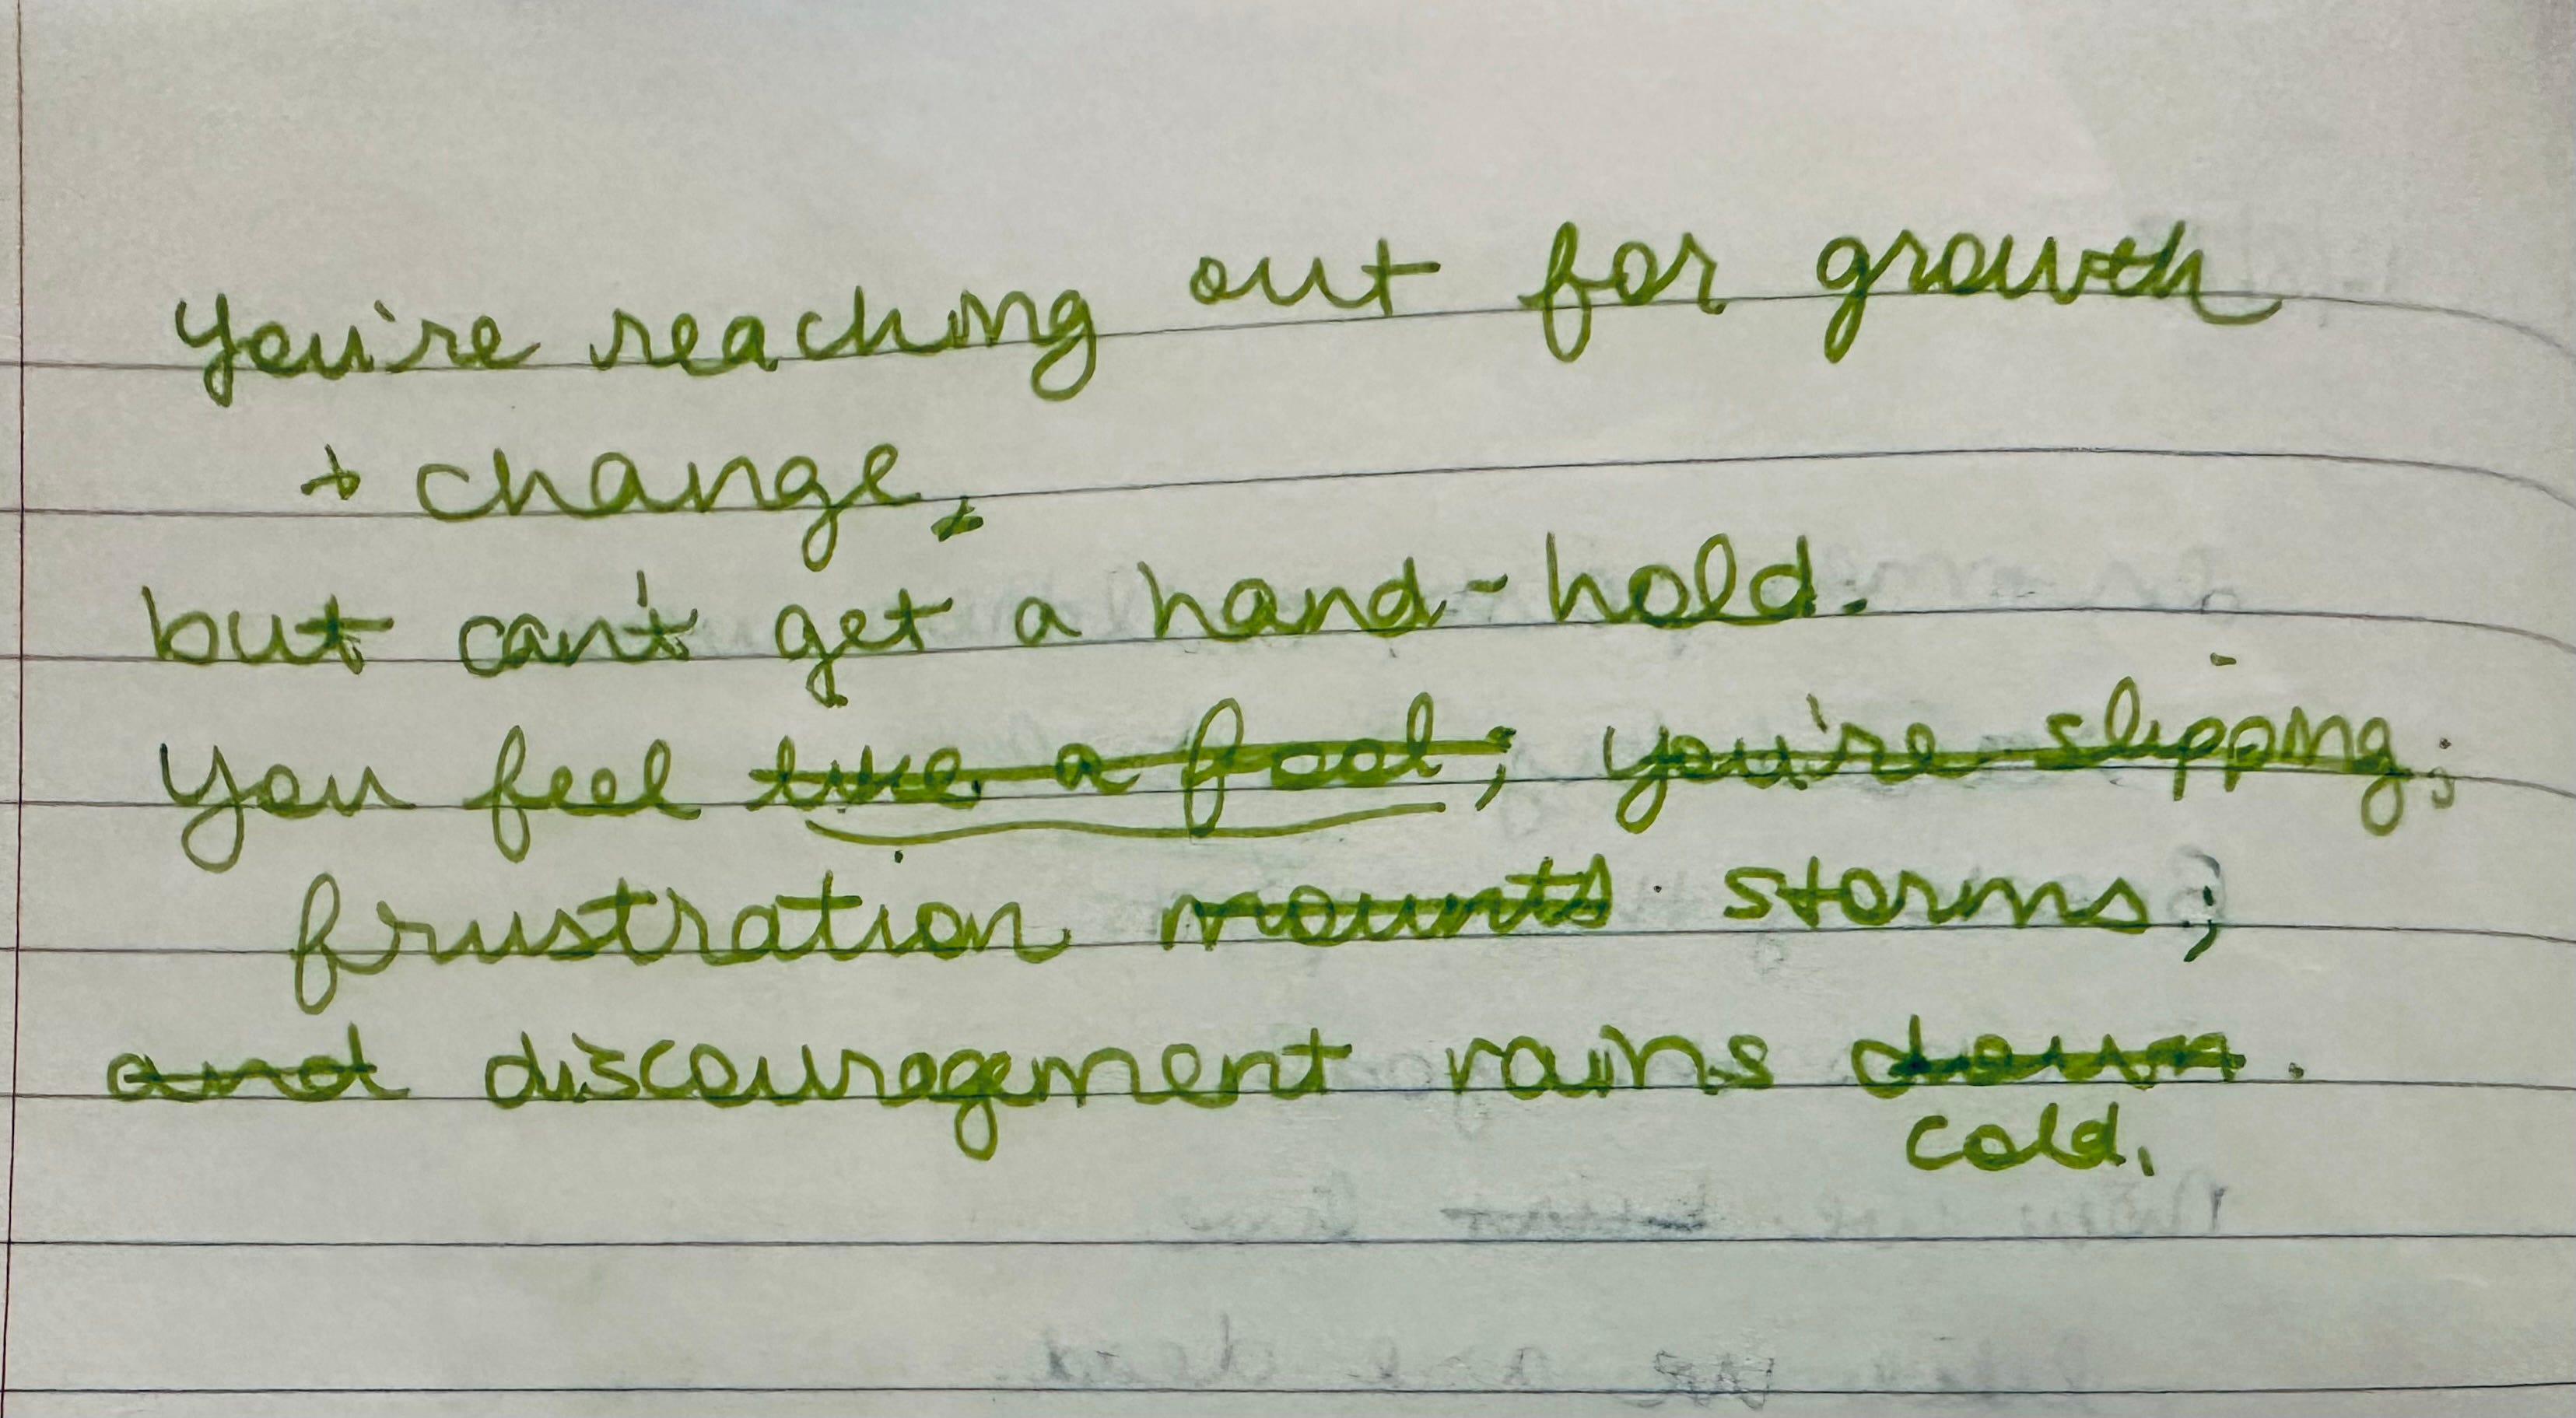 you're reaching out for growth
+ change,
but can't get a hand-hold.
you feel like a fool; you're slipping;
frustration mounts storms;
and discouragement rains down.
cold.